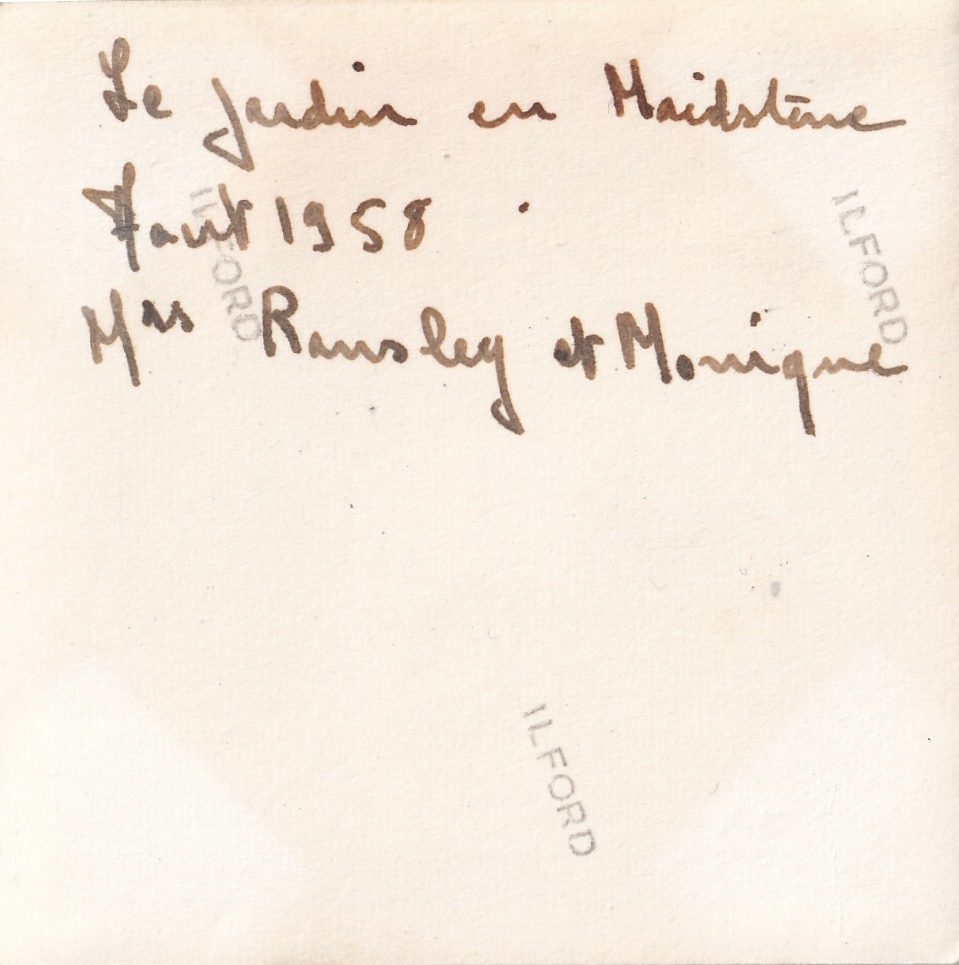 Le jardin en Maidstone
Aout 1958
Mrs Ransley et Monique
ILFORD
ILFORD
ILFORD